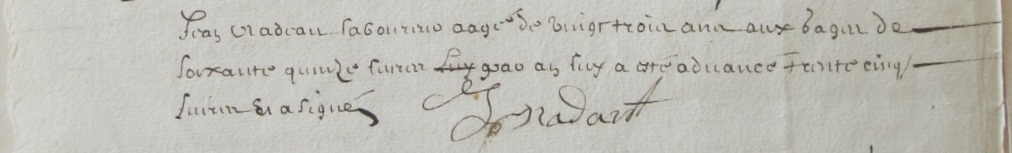 Jean nadeau laboureur aagé de vingt trois ans aux gages de
soixante quinze livres luy a esté advancé trente cinq
livres et a signé J nadart